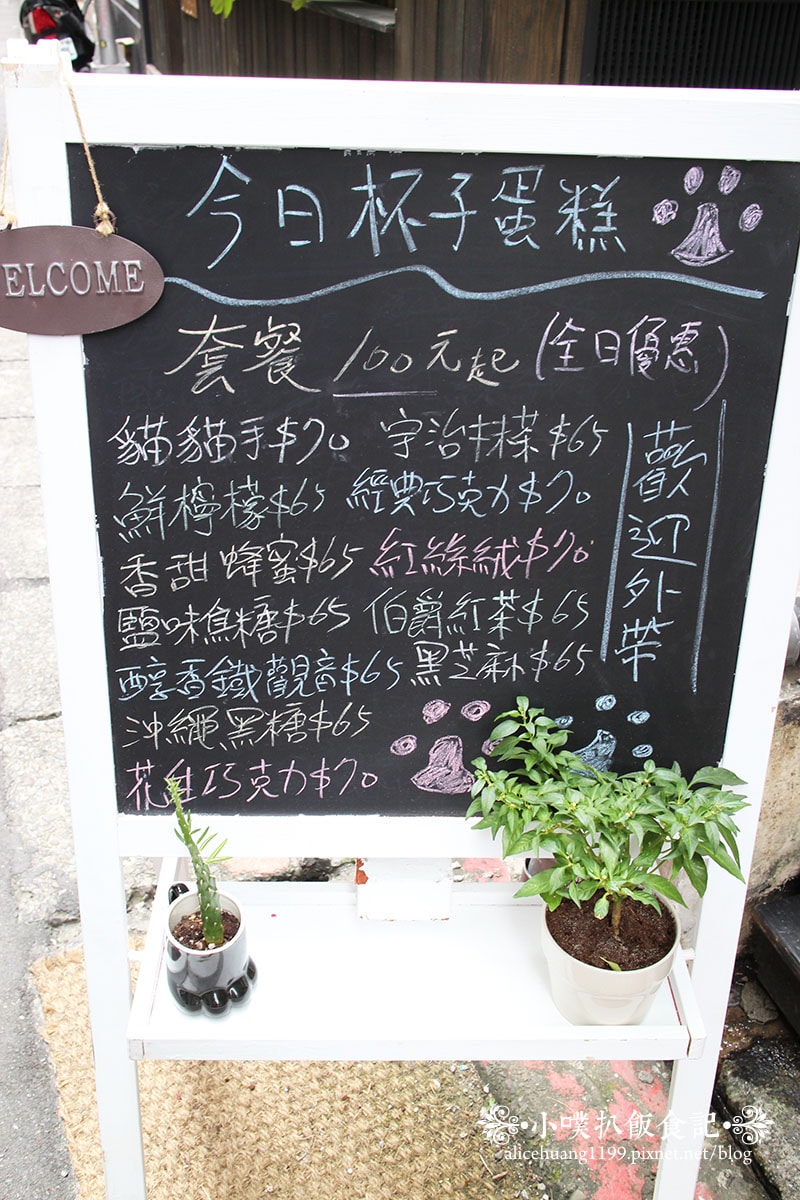 今日杯子蛋糕
ELCOME
套餐 100元起 (全日優惠)
貓貓手$70 宇治抹茶$65
鮮檸檬$65 經典巧克力$70
香甜蜂蜜$65 紅絲絨$70
鹽味焦糖$65 伯爵紅茶$65
醇香鐵觀音$65 黑芝麻$65
沖繩黑糖$65
花生巧克力$70
歡迎外帶
小噗扒飯食記
alicehuang1199.pixnet.net/blog